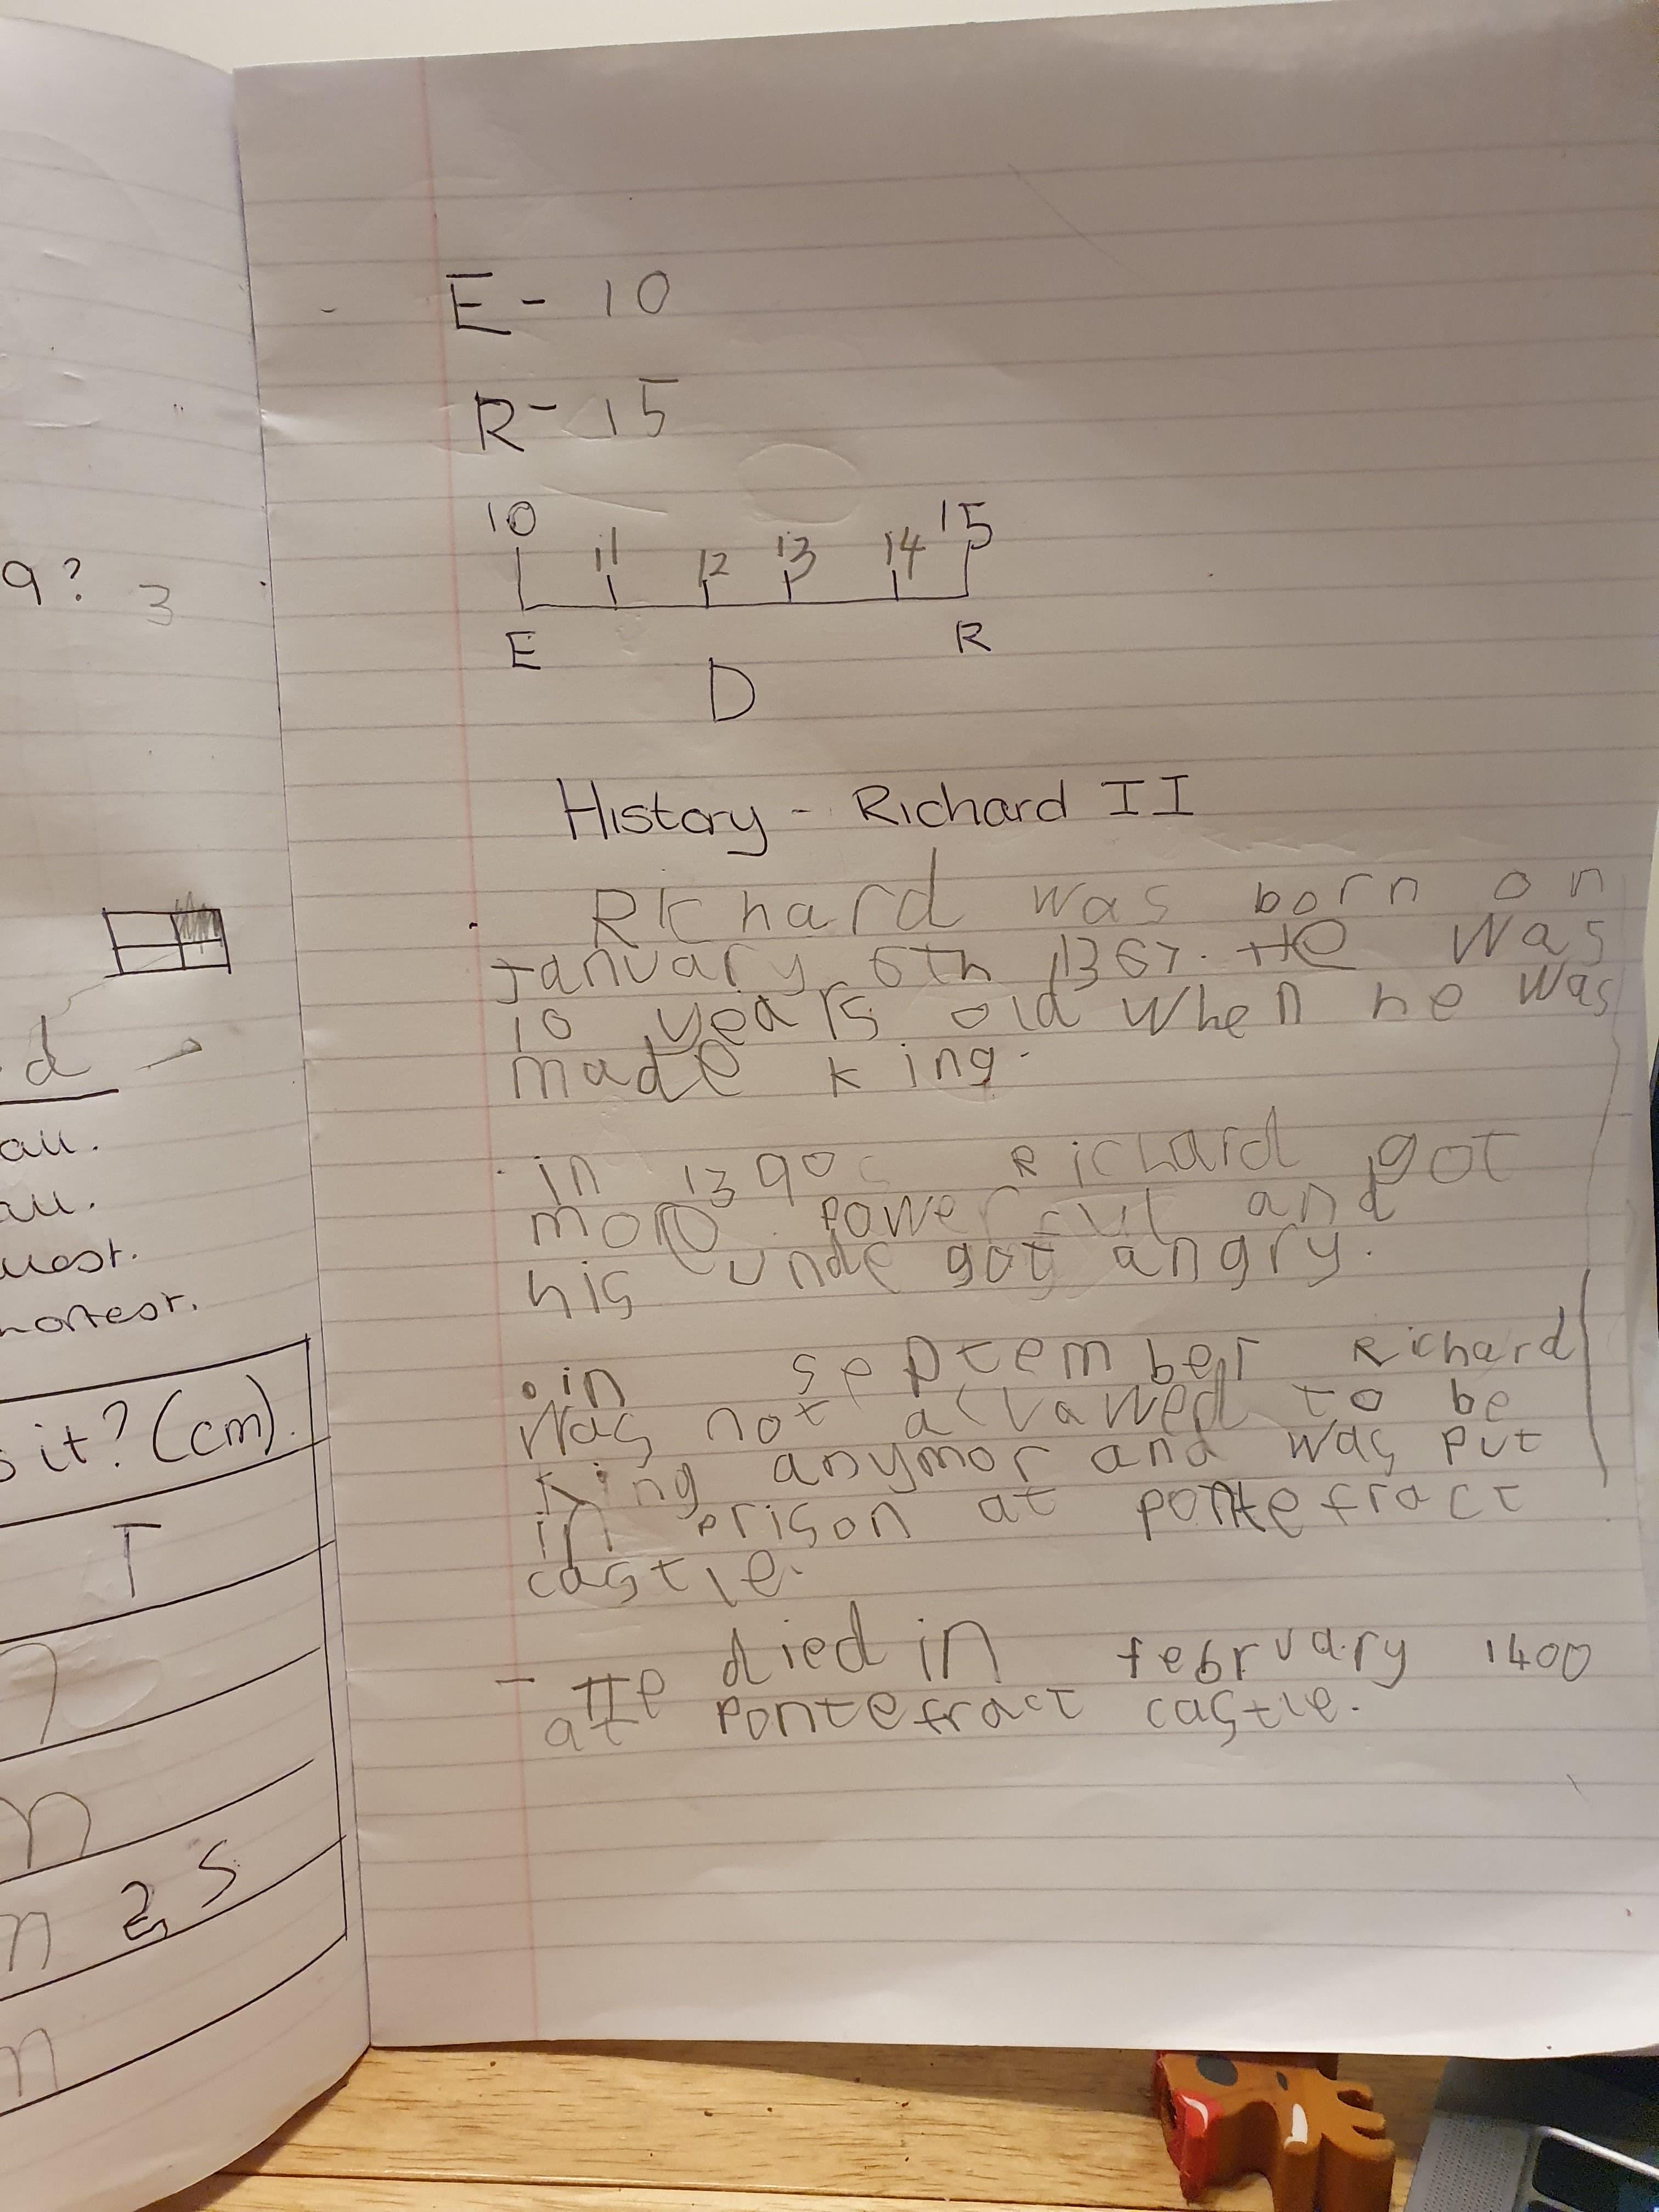 9? 3
d
all.
all.
uest.
hortest.
s it? (cm).
T
7
n
n 2 5
n
E - 10
R - 15
10 11 12 13 14 15
E R
D
History - Richard II
Richard was born on
January 6th 1367. He was
10 years old when he was
made king.
in 1390s Richard got
more powerful and
his uncle got angry.
• in september Richard
was not aluawed to be
King anymor and was put
in prison at pontefract
castle.
- He died in february 1400
at pontefract castle.